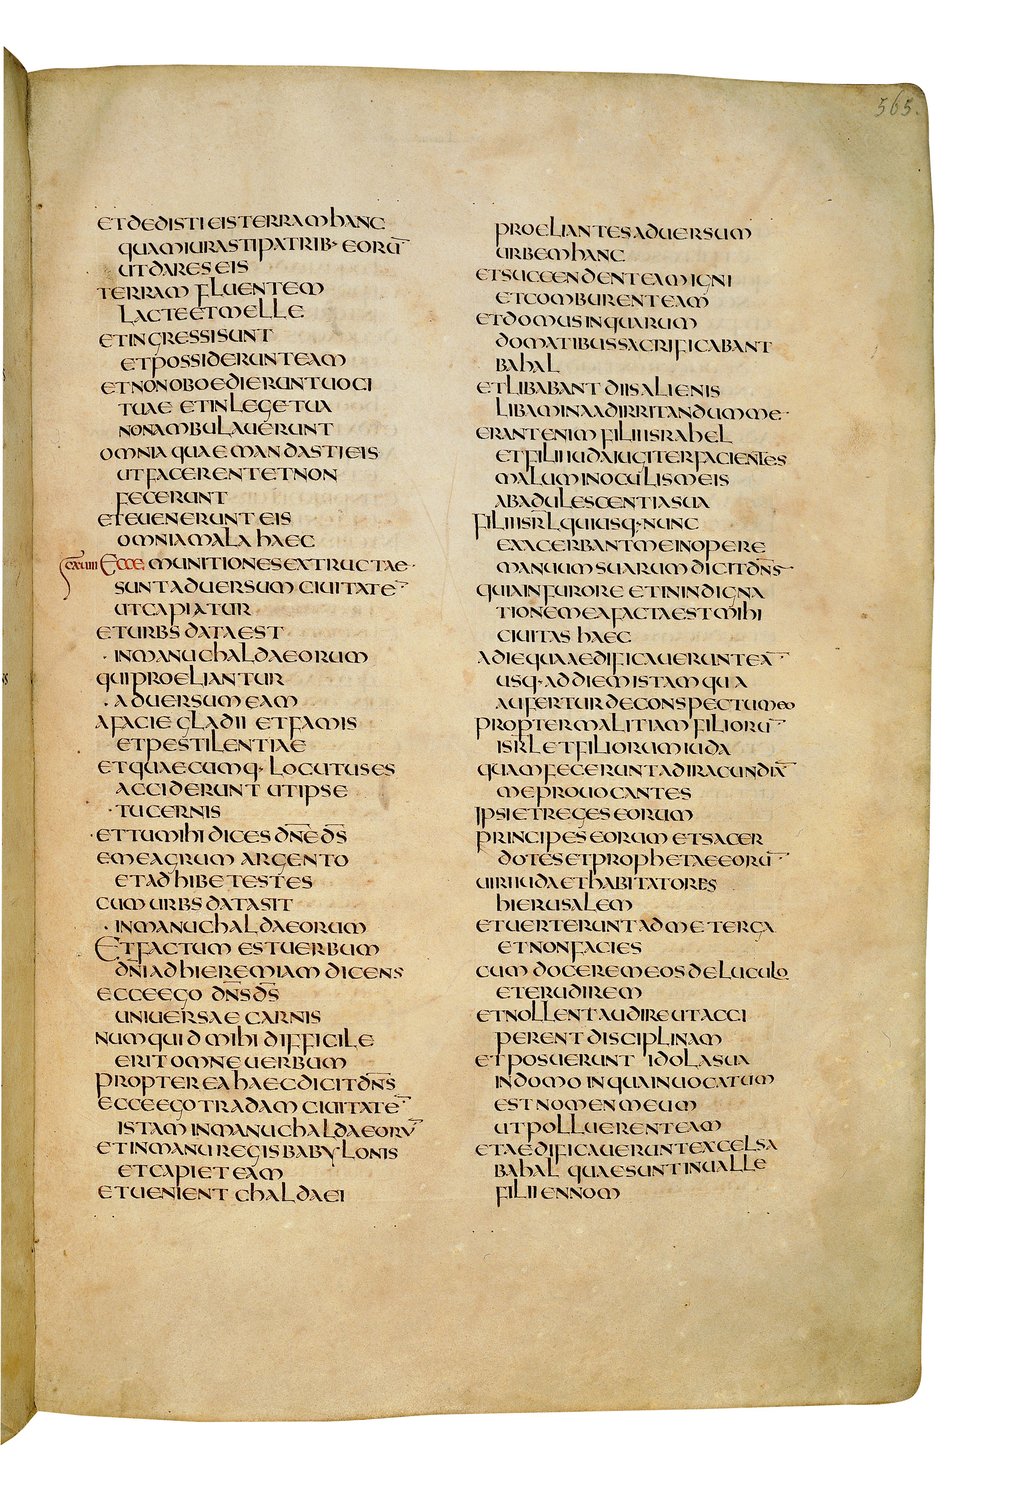 565.
ET DEDISTI EIS TERRAM HANC
QUAM IURASTI PATRIB· EORŪ
UT DARES EIS
TERRAM FLUENTEM
LACTE ET MELLE
ET INGRESSI SUNT
ET POSSIDERUNT EAM
ET NON OBOEDIERUNT UOCI
TUAE ET IN LEGE TUA
NON AMBULAUERUNT
OMNIA QUAE MANDASTI EIS
UT FACERENT ET NON
FECERUNT
ET EUENERUNT EIS
OMNIA MALA HAEC
ECCE MUNITIONES EXTRUCTAE·
SUNT ADUERSUM CIUITATĒ
UT CAPIATUR
ET URBS DATA EST
· IN MANU CHALDAEORUM
QUI PROELIANTUR
· ADUERSUM EAM
A FACIE GLADII ET FAMIS
ET PESTILENTIAE
ET QUAECUMQ· LOCUTUS ES
ACCIDERUNT UT IPSE
· TU CERNIS
· ET TU MIHI DICES DN̄E DS̄
EME AGRUM ARGENTO
ET ADHIBE TESTES
CUM URBS DATA SIT
· IN MANU CHALDAEORUM
ET FACTUM EST UERBUM
DN̄I AD HIEREMIAM DICENS
ECCE EGO DN̄S DS̄
UNIUERSAE CARNIS
NUMQUID MIHI DIFFICILE
ERIT OMNE UERBUM
PROPTEREA HAEC DICIT DN̄S
ECCE EGO TRADAM CIUITATĒ
ISTAM IN MANU CHALDAEORŪ
ET IN MANU REGIS BABYLONIS
ET CAPIET EAM
ET UENIENT CHALDAEI
PROELIANTES ADUERSUM
URBEM HANC
ET SUCCENDENT EAM IGNI
ET COMBURENT EAM
ET DOMUS IN QUARUM
DOMATIBUS SACRIFICABANT
BAHAL
ET LIBABANT DIIS ALIENIS
LIBAMINA AD IRRITANDUM ME·
ERANT ENIM FILII ISRAHEL
ET FILII IUDA IUGITER FACIENTES
MALUM IN OCULIS MEIS
AB ADULESCENTIA SUA
FILII ISRL̄ QUI USQ· NUNC
EXACERBANT ME IN OPERE
MANUUM SUARUM DICIT DN̄S
QUIA IN FURORE ET IN INDIGNA
TIONE MEA FACTA EST MIHI
CIUITAS HAEC
A DIE QUA AEDIFICAUERUNT EĀ
USQ· AD DIEM ISTAM QUA
AUFERTUR DE CONSPECTU MEO
PROPTER MALITIAM FILIORŪ
ISRL̄ ET FILIORUM IUDA
QUAM FECERUNT AD IRACUNDIĀ
ME PROUOCANTES
IPSI ET REGES EORUM
PRINCIPES EORUM ET SACER
DOTES ET PROPHETAE EORŪ
UIRI IUDA ET HABITATORES
HIERUSALEM
ET UERTERUNT AD ME TERGA
ET NON FACIES
CUM DOCEREM EOS DELUCULO
ET ERUDIREM
ET NOLLENT AUDIRE UT ACCI
PERENT DISCIPLINAM
ET POSUERUNT IDOLA SUA
IN DOMO IN QUA INUOCATUM
EST NOMEN MEUM
UT POLLUERENT EAM
ET AEDIFICAUERUNT EXCELSA
BAHAL QUAE SUNT IN UALLE
FILII ENNOM